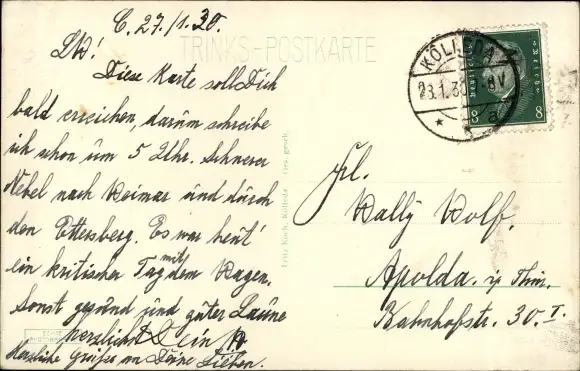 C. 27./1. 30.
TRINKS-POSTKARTE
LW!
Diese Karte soll Dich
bald erreichen, darum schreibe
ich schon um 5 Uhr. Schwerer
Nebel nach Weimar und durch
den Ettersberg. Es war heut'
ein kritischer Tag mit dem Wagen.
Sonst gesund und guter Laune
herzlichst Dein
Herzliche Grüße an Deine Lieben.
Fritz Koch, Kölleda Ges. gesch.
KÖLLEDA
28.1.30 7-8V
a
8 8
Frl.
Wally Wolf.
Apolda i/ Thür.
Bahnhofstr. 30. I.